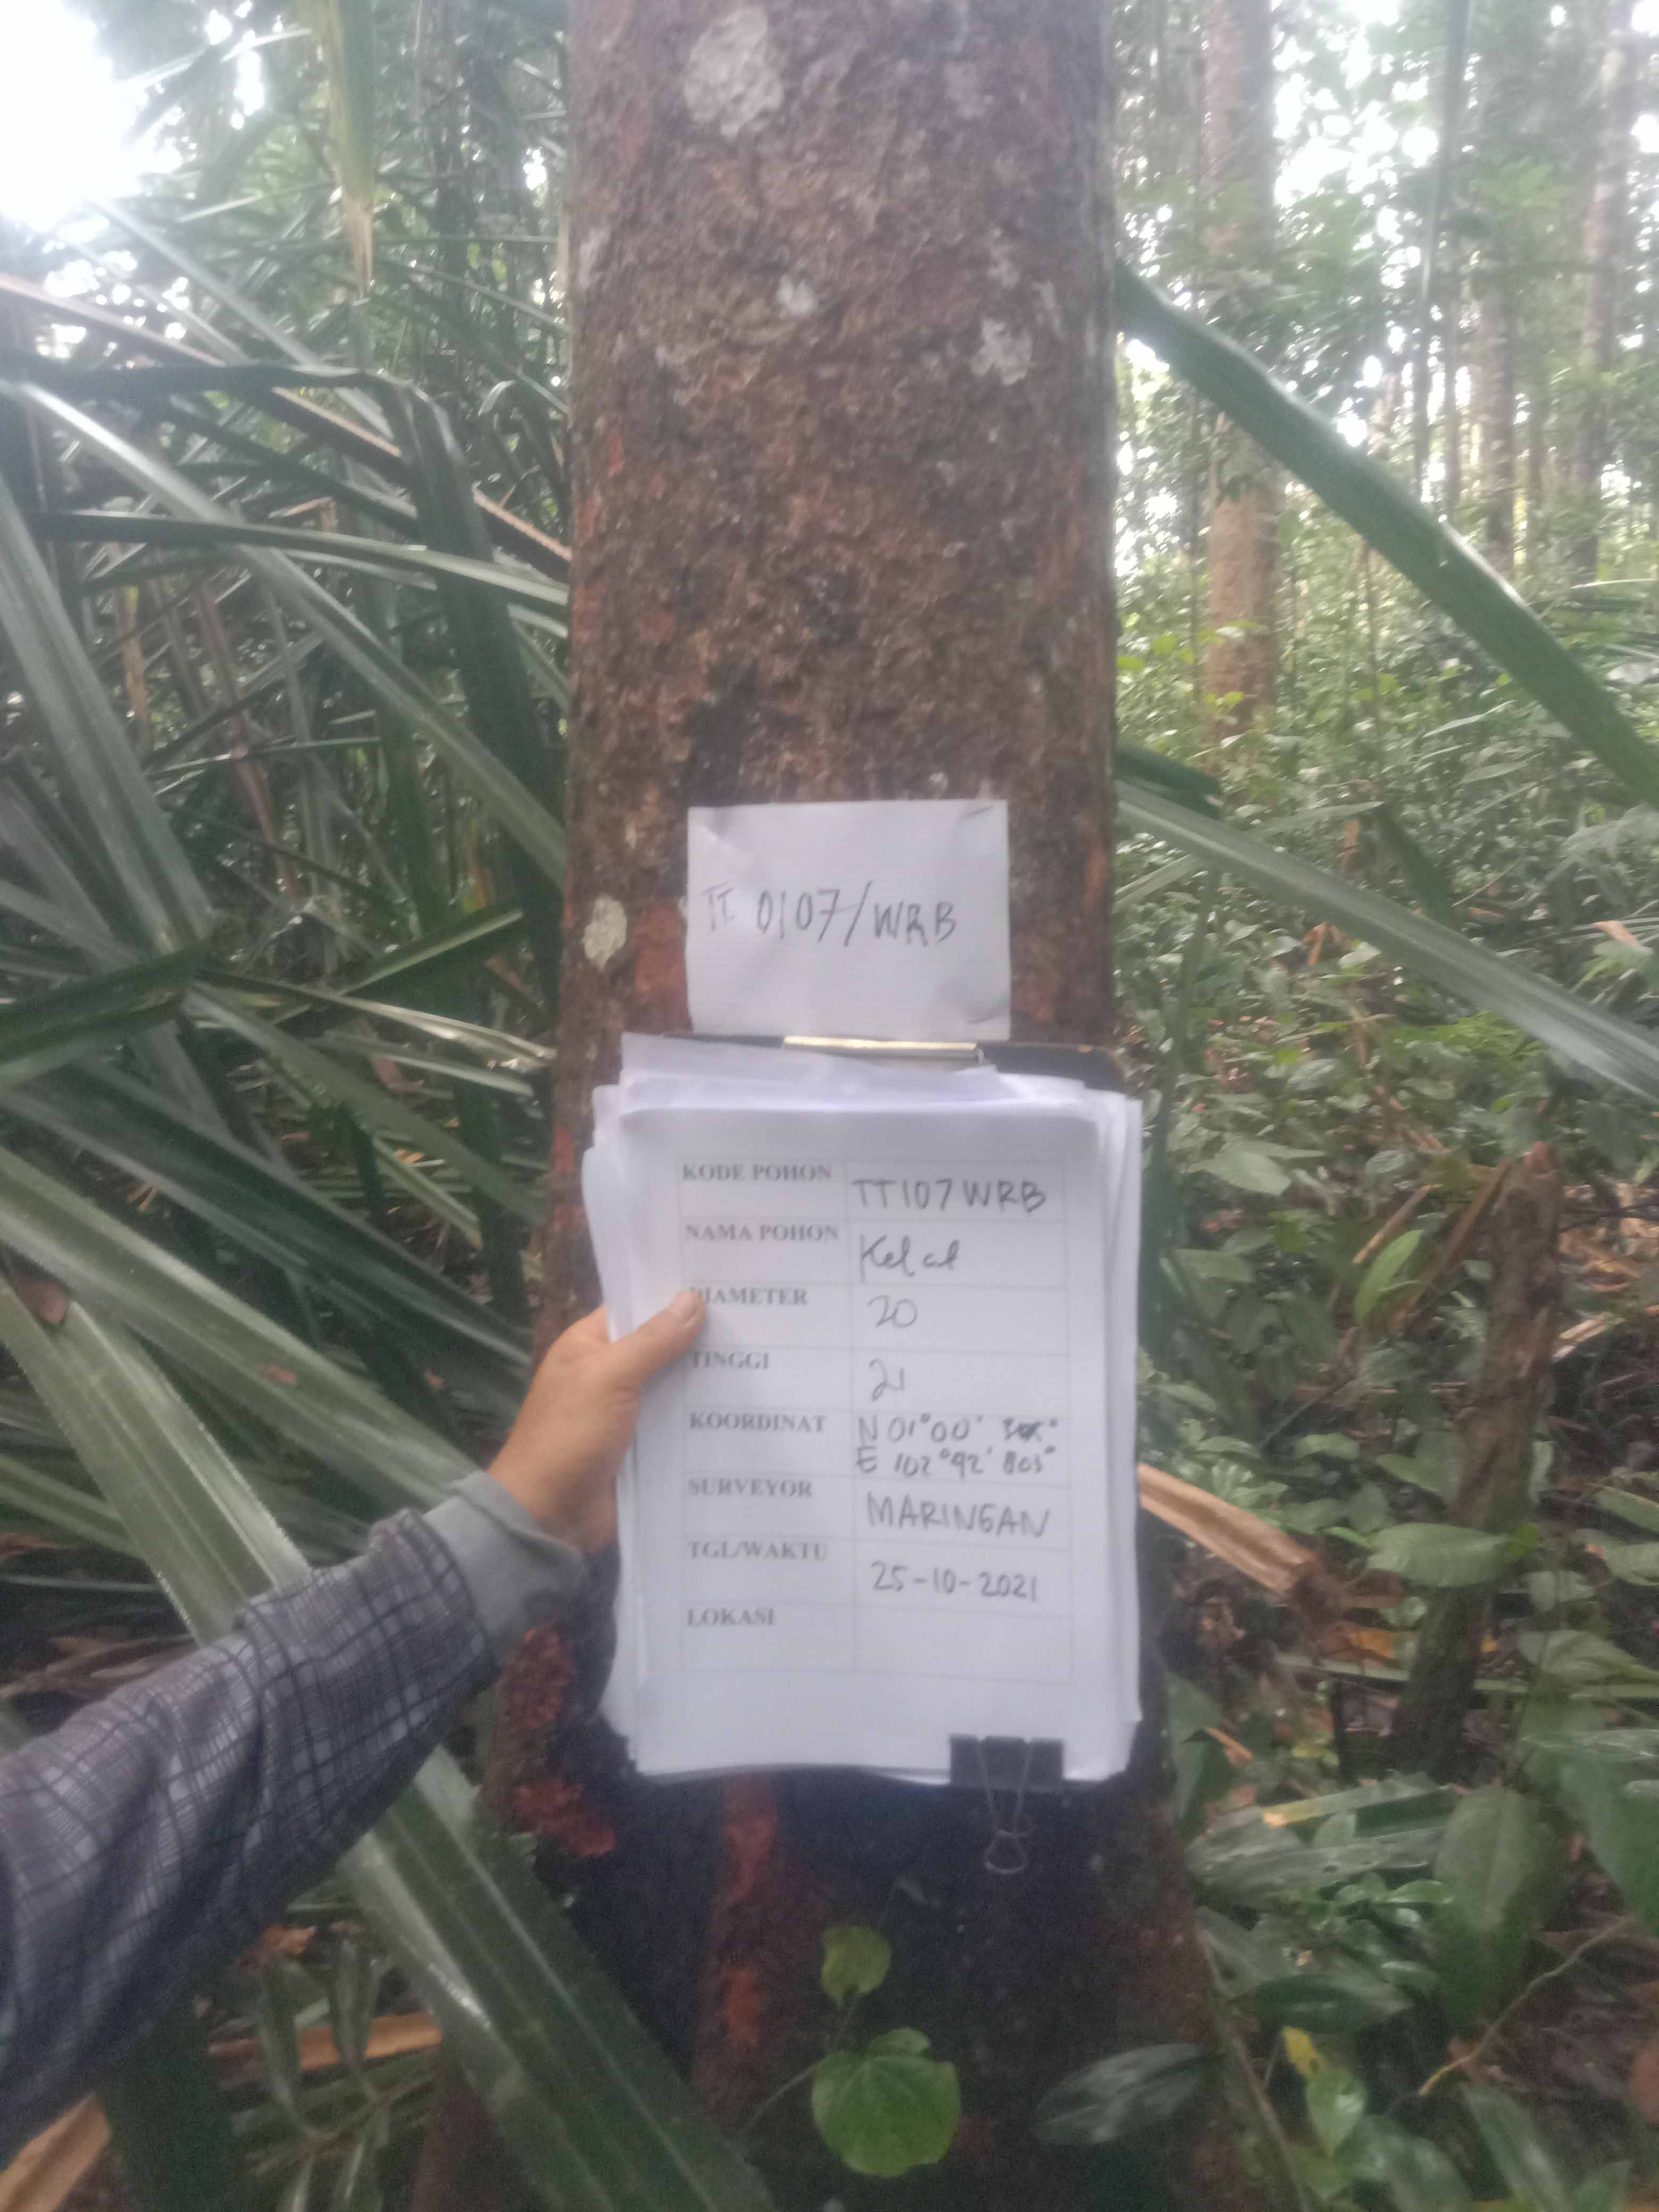 TT 0107/WRB
KODE POHON TT107 WRB
NAMA POHON Kelat
DIAMETER 20
TINGGI 21
KOORDINAT N 01°00'
E 102°92' 803"
SURVEYOR MARINGAN
TGL/WAKTU 25-10-2021
LOKASI